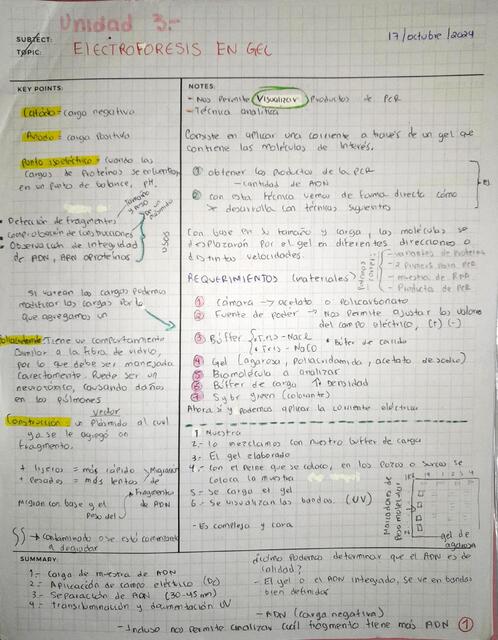 Unidad 3:-
SUBJECT:
TOPIC: ELECTROFORESIS EN GEL
17/octubre/2024
KEY POINTS:
Cátodo= carga negativa
Ánodo= carga Positiva
Punto isoeléctrico= cuando las
cargas de Proteínas se encuentran
en un Punto de balance, PH.
• Detección de fragmentos
• comprobación de construcciones
• Observación de integridad
de ADN, ARN o proteínas
Tamaño
y Peso
de un
Plásmido
USOS
Si varean las cargas podemos
modificar las cargas Por lo
que agregamos un
Tiene un comportamiento
similar a la fibra de vidrio,
por lo que debe ser manejada
correctamente. Puede ser un
neurotóxico, causando daños
en los pulmones
vector
Construcción= un Plásmido al cual
ya se le agregó un
fragmento.
+ ligeros = más rápido
+ Pesados = más lentos
Migran
de
fragmentos
de ADN
Migran con base y el
Peso del
→ contaminado o se está comenzando
a degradar
NOTES:
- Nos Permite Visualizar Productos de PCR
- Técnica analítica
Consiste en aplicar una corriente a través de un gel que
contiene las moléculas de interés.
① obtener los productos de la PCR
- cantidad de ADN
② con esta técnica vemos de forma directa cómo
se desarrolla con técnicas siguientes
Con base en su tamaño y carga, las moléculas se
desplazarán Por el gel en diferentes direcciones o
distintas velocidades.
REQUERIMIENTOS (materiales)
- variantes de Proteína
- 2 Primers para PCR
- muestra de
- Producto de PCR
① Cámara → acetato o Policarbonato
② Fuente de poder → Nos permite ajustar los valores
del campo eléctrico, (+) (-)
③ Búffer
* Tris - NaCl
* Búffer de corrido
④ Gel (agarosa, Poliacrilamida, acetato de
⑤ Biomolécula a analizar
⑥ Búffer de carga ↑ densidad
⑦ Sybr green (colorante)
Ahora sí podemos aplicar la corriente eléctrica
1 Muestra
2:- lo mezclamos con nuestro buffer de carga
3:- El gel elaborado
4:- con el Peine que se coloco, en los Pozos o surcos se
coloca la muestra
5:- Se carga el gel
6:- Se visualizan las bandas. (UV)
- Es compleja y cara
Marcadores de
Peso molecular
1 2 3 4
gel de
agarosa
SUMMARY:
1:- Carga de muestra de ADN
2:- Aplicación de campo eléctrico (DC)
3:- Separación de ADN (30-45 min)
4:- Transiluminación y documentación UV
¿cómo Podemos determinar que el ADN es de
calidad?
- El gel o el ADN integrado, se ve en bandas
bien definidas
- ADN (carga negativa)
- Incluso nos permite analizar cuál fragmento tiene más ADN ①